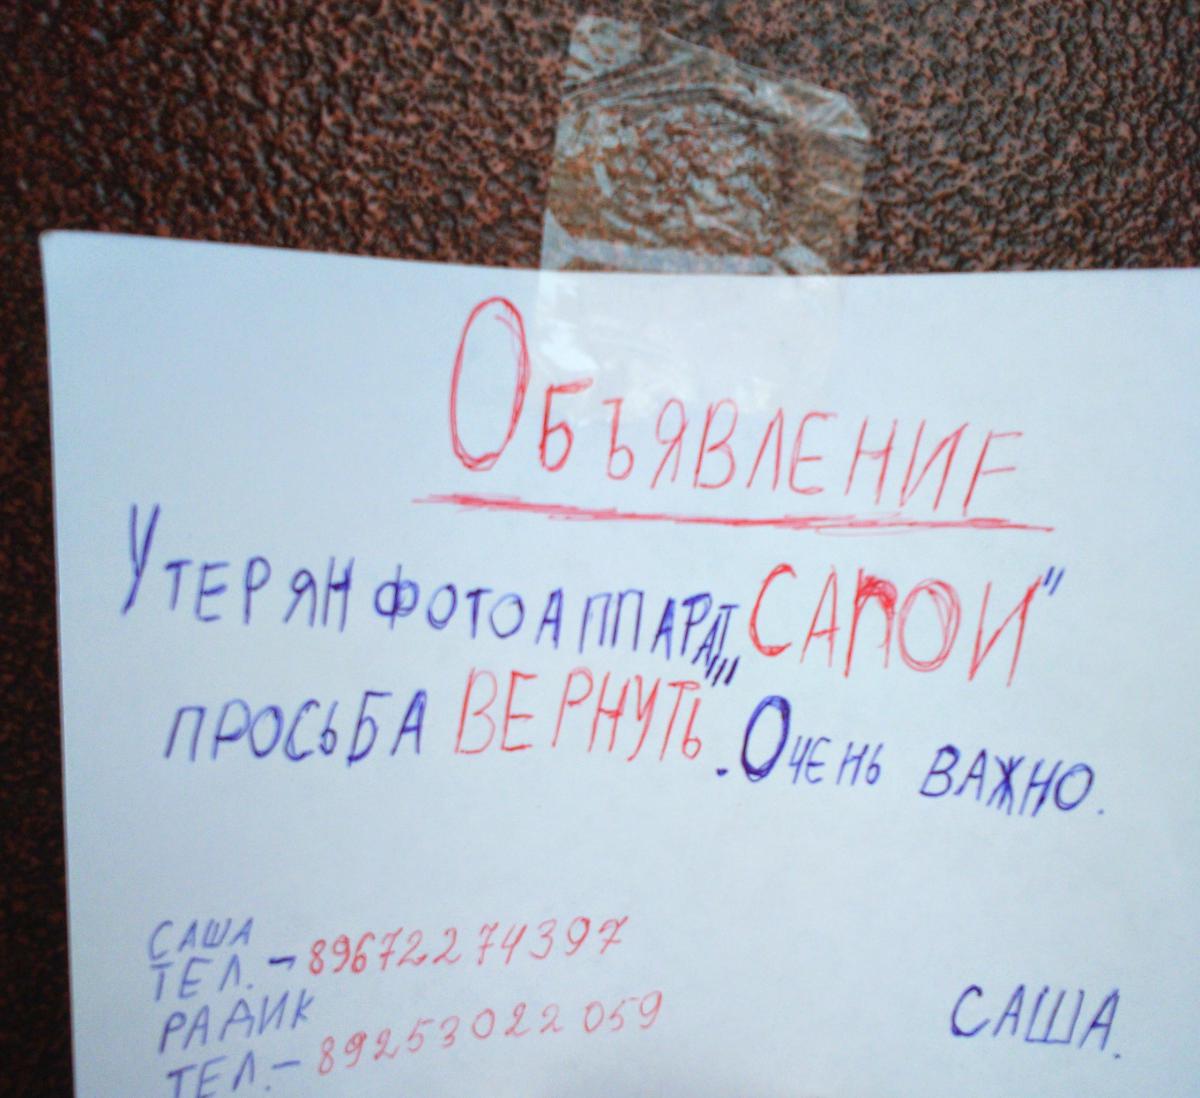 ОБЪЯВЛЕНИЕ
УТЕРЯН ФОТОАППАРАТ „САПОИ"
ПРОСЬБА ВЕРНУТЬ". ОЧЕНЬ ВАЖНО.
САША
ТЕЛ. – 89672274397
РАДИК
ТЕЛ. – 89253022059
САША.